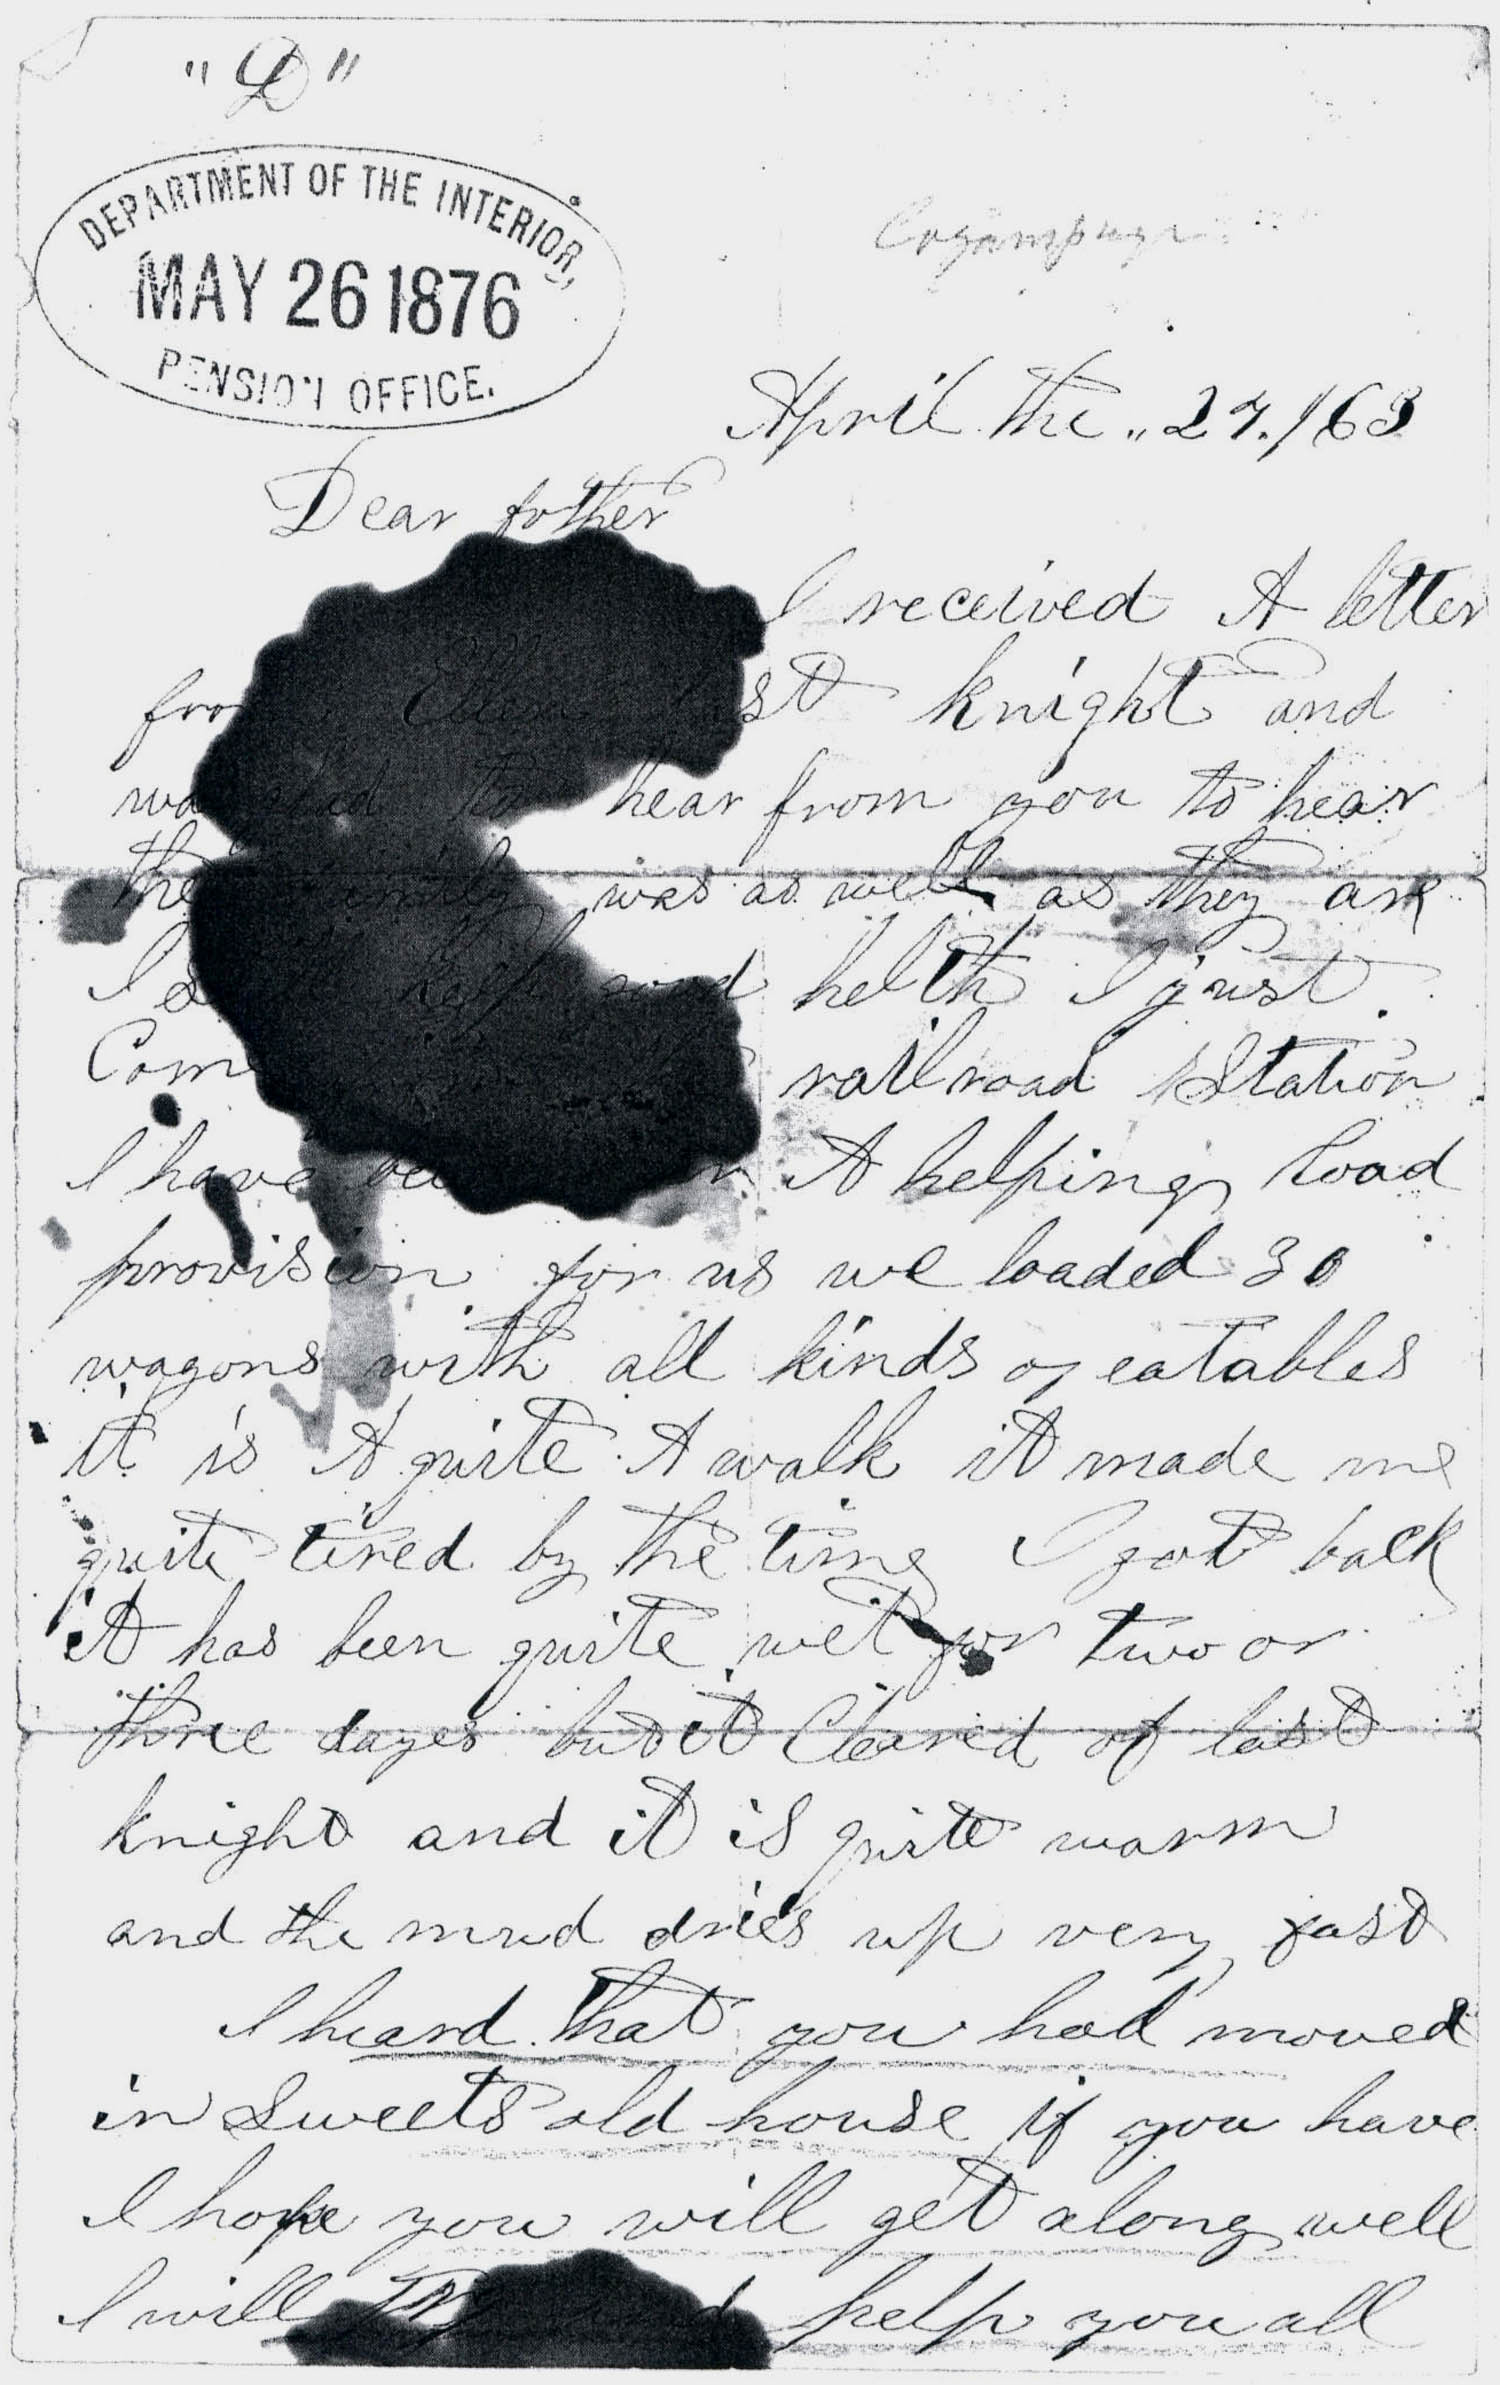 "D"
DEPARTMENT OF THE INTERIOR,
MAY 26 1876
PENSION OFFICE.
April the „ 27. / 63
Dear father
I received A letter
from Ellen last knight and
was glad to hear from you to hear
the family was as well as they are
I still keep good helth I just
Come railroad Station
I have been A helping load
provision for us we loaded 30
wagons with all kinds of eatables
it is A quite A walk it made me
quite tired by the time I got back
it has been quite wet for two or
three dayes but it Cleared of last
knight and it is quite warm
and the mud dries up very fast
I heard that you had moved
in Sweets old house if you have
I hope you will get along well
I will try and help you all